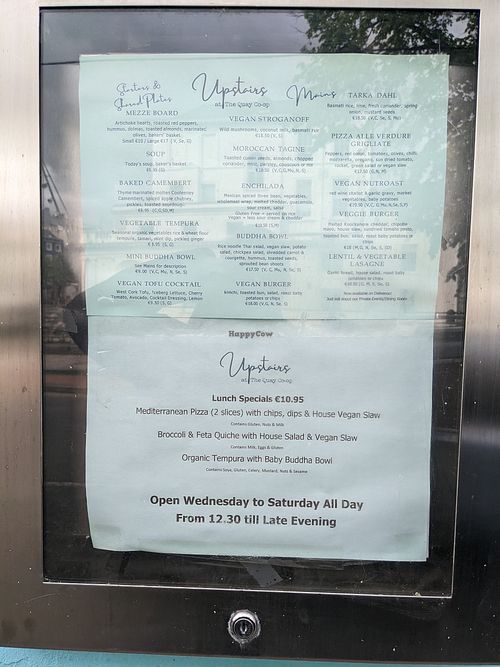 Starters &
Shared Plates
MEZZE BOARD
Artichoke hearts, roasted red peppers,
hummus, dolmas, toasted almonds, marinated
olives, bakers' basket.
Small €10 / Large €17 ( V, Se, G)
SOUP
Today's soup, baker's basket
BAKED CAMEMBERT
Thyme marinated molten Cooleeney
Camembert, spiced apple chutney,
pickles, toasted sourdough
VEGETABLE TEMPURA
Seasonal organic vegetables rice & wheat flour
tempura, tamari, mint dip, pickled ginger
MINI BUDDHA BOWL
See Mains for description
€9.00 (V.C, Mu, N, Se, S)
VEGAN TOFU COCKTAIL
West Cork Tofu, Iceberg Lettuce, Cherry
Tomato, Avocado, Cocktail Dressing, Lemon
€9.50 (S, G)
Upstairs
at The Quay Co-op
Mains
VEGAN STROGANOFF
Wild mushrooms, coconut milk, basmati rice
MOROCCAN TAGINE
Toasted cumin seeds, almonds, chopped
coriander, mint, parsley, couscous or rice
ENCHILADA
Mexican spiced three bean, vegetables,
wholemeal wrap, melted cheddar, guacamole,
sour cream, salsa
Gluten Free – served on rice
Vegan – less sour cream & cheddar
BUDDHA BOWL
Rice noodle Thai salad, vegan slaw, potato
salad, chickpea salad, shredded carrot &
courgette, hummus, toasted seeds,
sprouted bean shoots
€17.50 (V. C, Mu, N, Se, S)
VEGAN BURGER
kimchi, toasted bun, salad, roast baby
potatoes or chips
€18.00 (V.G, N, Se, S)
TARKA DAHL
Basmati rice, lime, fresh coriander, spring
onion, mustard seeds
PIZZA ALLE VERDURE
GRIGLIATE
Peppers, red onion, tomatoes, olives, chilli,
mozzarella, oregano, sun dried tomato,
rocket, green salad or vegan slaw
VEGAN NUTROAST
red wine shallot & garlic gravy, market
vegetables, baby potatoes
VEGGIE BURGER
mayo, house slaw, sundried tomato pesto,
toasted bun, salad, roast baby potatoes or
chips
LENTIL & VEGETABLE
LASAGNE
Garlic bread, house salad, roast baby
potatoes or chips
Now available on Deliveroo!
Just ask about our Private Events/Dining Room
HappyCow
Upstairs
at The Quay Co-op
Lunch Specials €10.95
Mediterranean Pizza (2 slices) with chips, dips & House Vegan Slaw
Contains Gluten, Nuts & Milk
Broccoli & Feta Quiche with House Salad & Vegan Slaw
Contains Milk, Eggs & Gluten
Organic Tempura with Baby Buddha Bowl
Contains Soya, Gluten, Celery, Mustard, Nuts & Sesame
Open Wednesday to Saturday All Day
From 12.30 till Late Evening